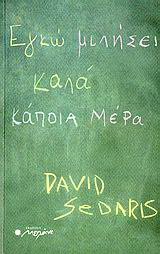 Εγκώ μιλήσει
καλά
κάποια μέρα
DAVID
SeDARIS
μελάνι